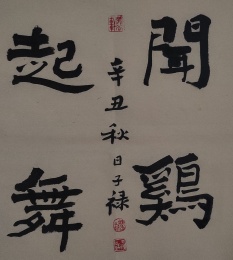 聞鷄
起舞
辛丑秋日子禄